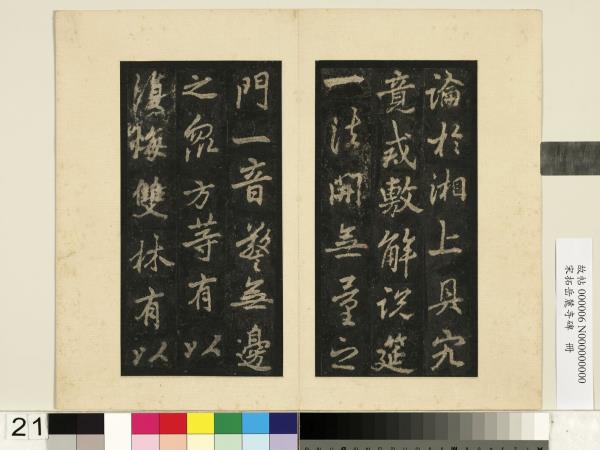 論於湘上具究
竟戒敷解說筵
一法開無量之
門一音警無邊
之衆方等有以
復悔雙林有以
故帖 000006 N000000000
宋拓岳麓寺碑 冊
21